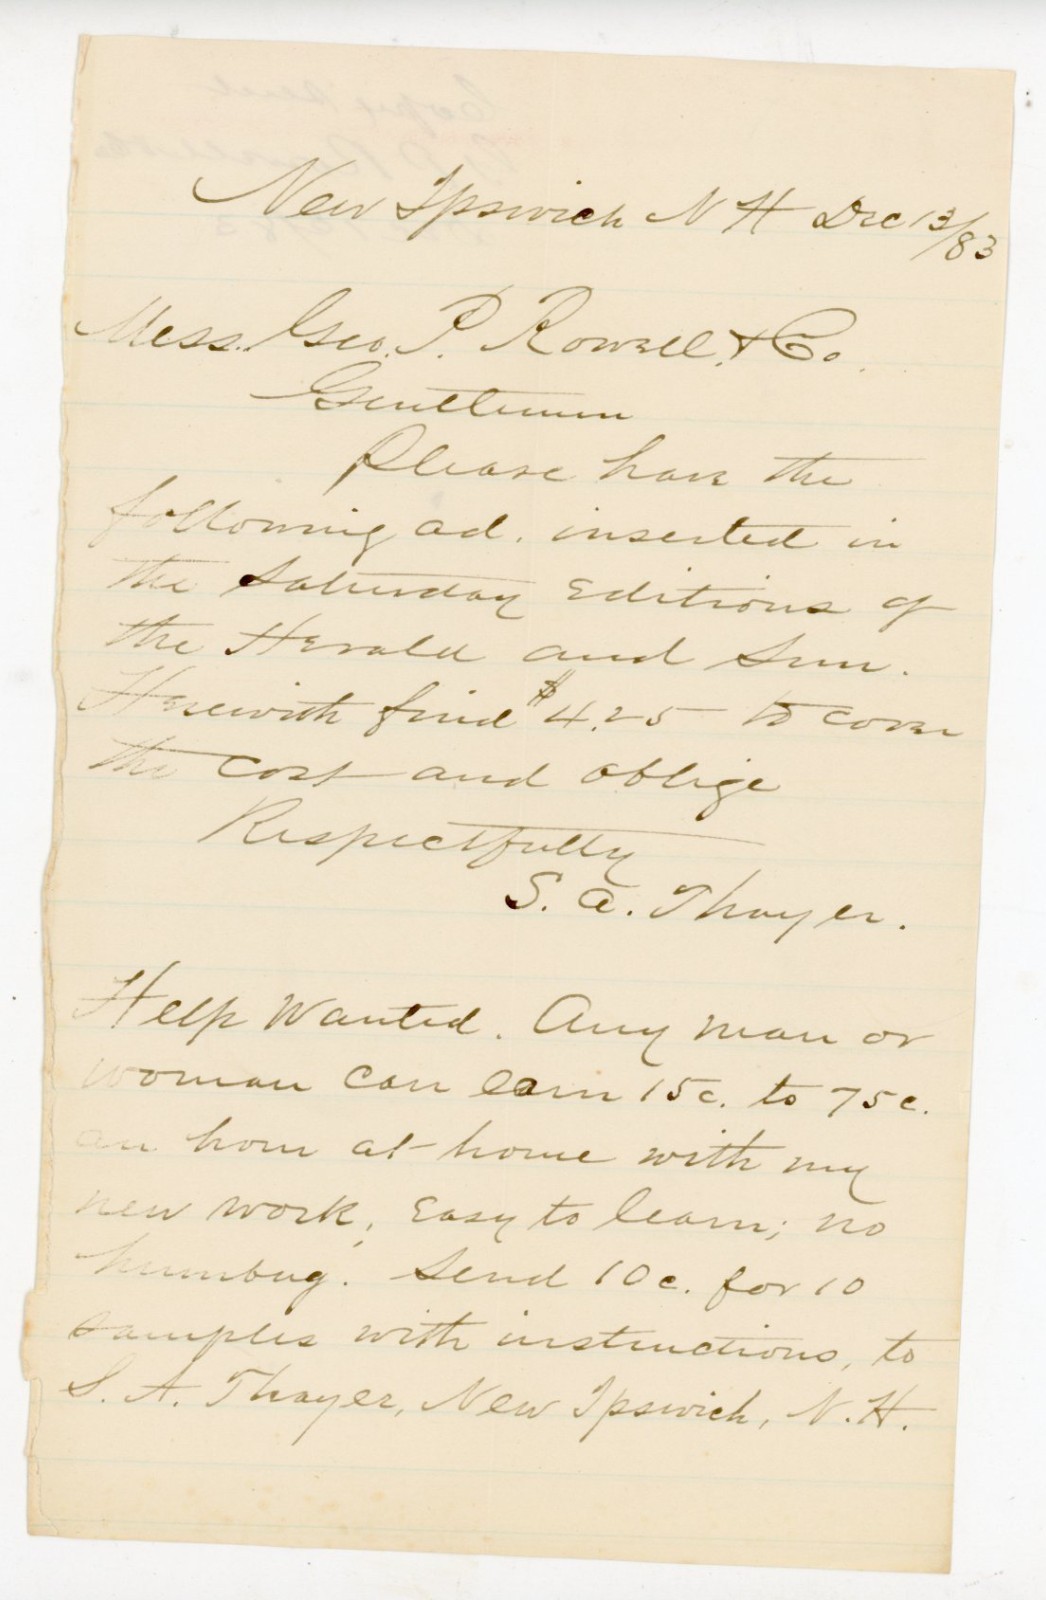 New Ipswich N H Dec 13/83
Mess. Geo. P. Rowell & Co.
Gentlemen
Please have the
following ad. inserted in
the Saturday Editions of
the Herald and Sun.
Herewith find $4.25 to cover
the cost and oblige
Respectfully
S. A. Thayer.
Help Wanted. Any man or
woman can earn 15c. to 75c.
an hour at home with my
new work; Easy to learn; no
humbug. Send 10c. for 10
samples with instructions, to
S. A. Thayer, New Ipswich, N. H.